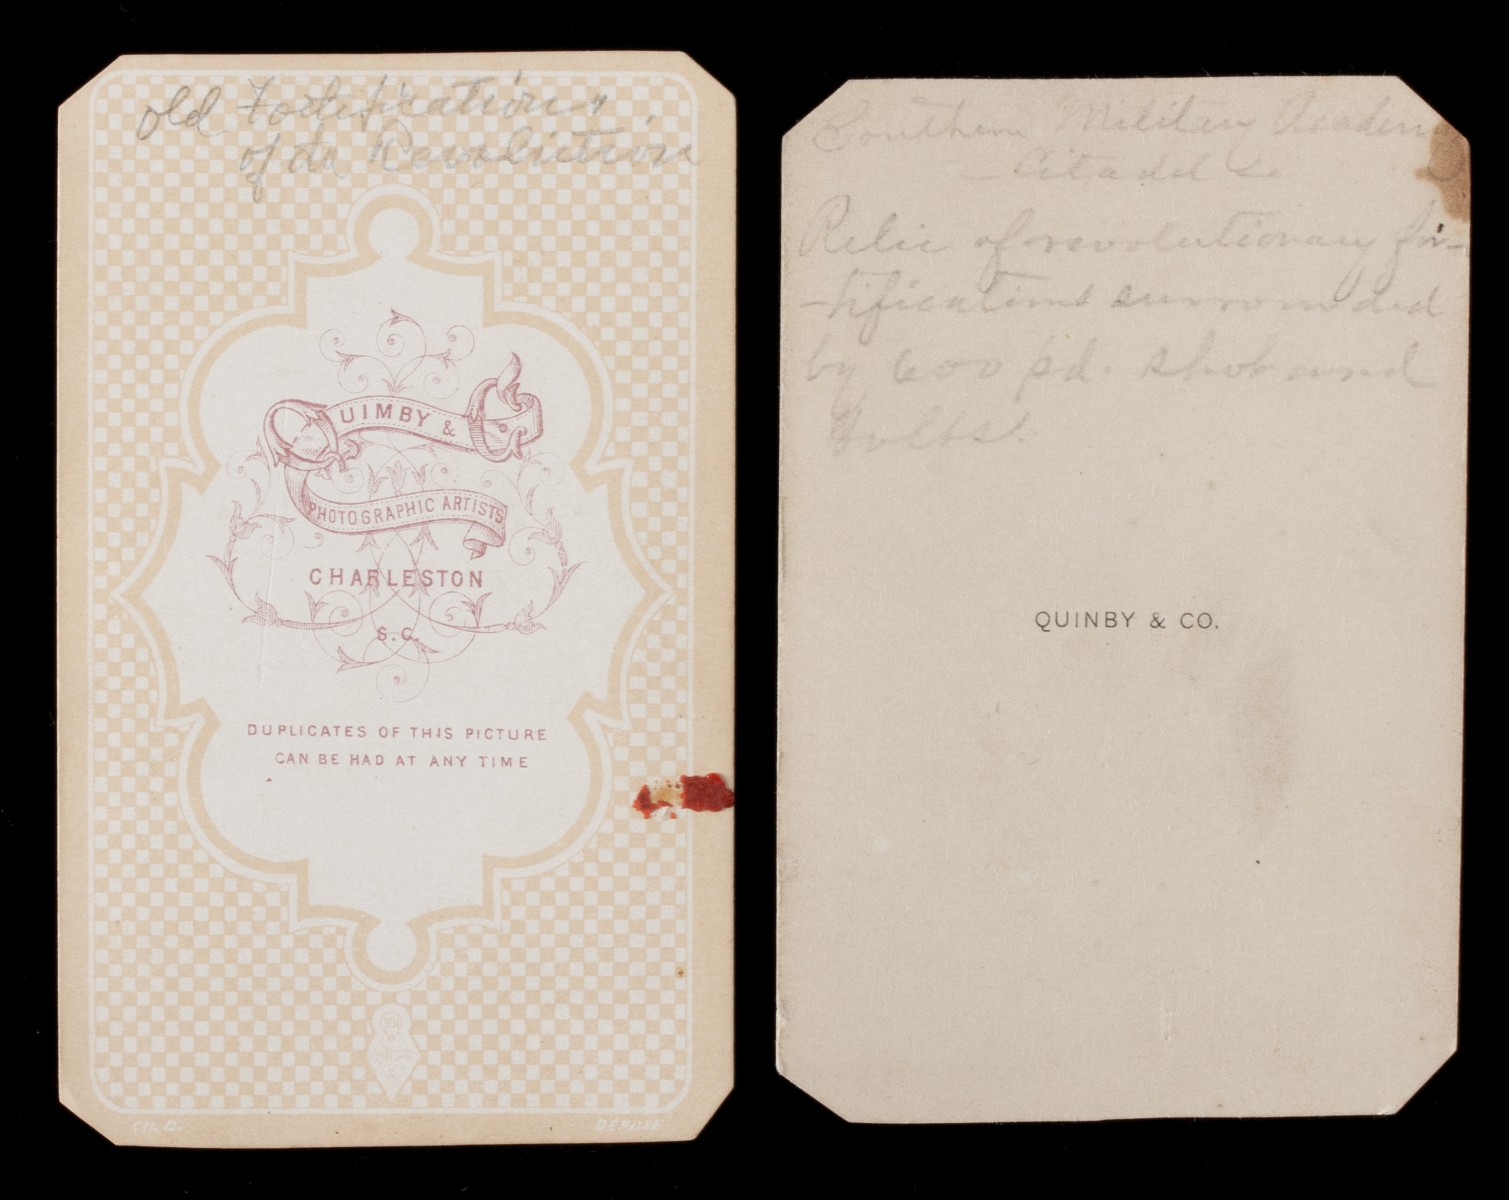 old Fortification"
of da Revolution
QUIMBY & Co
PHOTOGRAPHIC ARTISTS
CHARLESTON
S.C.
DUPLICATES OF THIS PICTURE
CAN BE HAD AT ANY TIME
CH. D.
DEPOSE
Southern Military Academy
- Citadel
Relic of revolutionary for-
-tifications surrounded
by 600 pd. shot and
bolts.
QUINBY & CO.